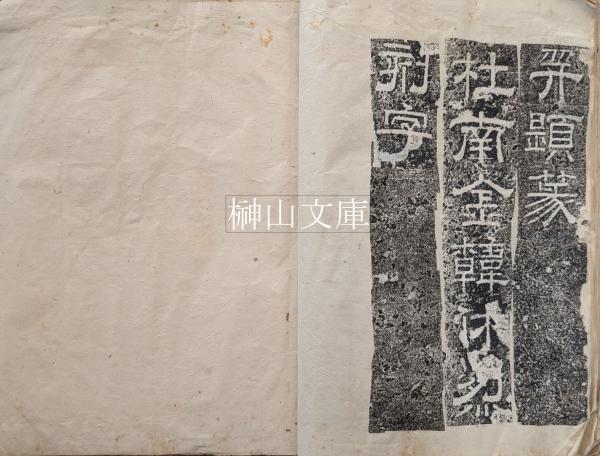 并題篆
杜南金韓休烈
刻字
榊山文庫